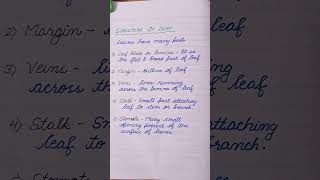 STRUCTURE OF LEAF
Leaves have many parts
1) Leaf Blade or Lamina - It is
the flat & broad part of leaf
2) Margin - Outline of leaf
3) Veins - Lines running
across the lamina of leaf
4) Stalk - Small part attaching
leaf to stem or branch.
5) Stomata - Many small
opening present at the
surface of leaves.
2) Margin -
3) Veins - Li
across
4) Stalk -
leaf to
of leaf
ng
of leaf
attaching
branch.